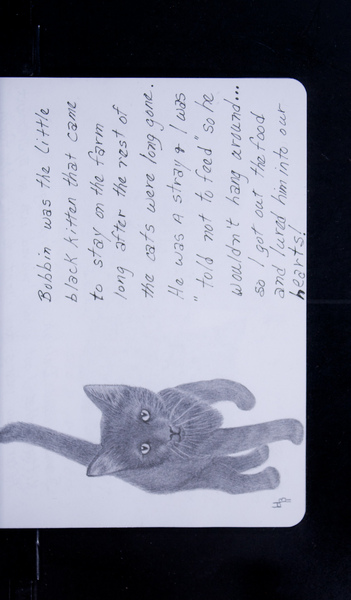 Bobbin was the little
black kitten that came
to stay on the farm
long after the rest of
the cats were long gone.
He was a stray & I was
"told not to feed" so he
wouldn't hang around...
so I got out the food
and lured him into our
hearts!